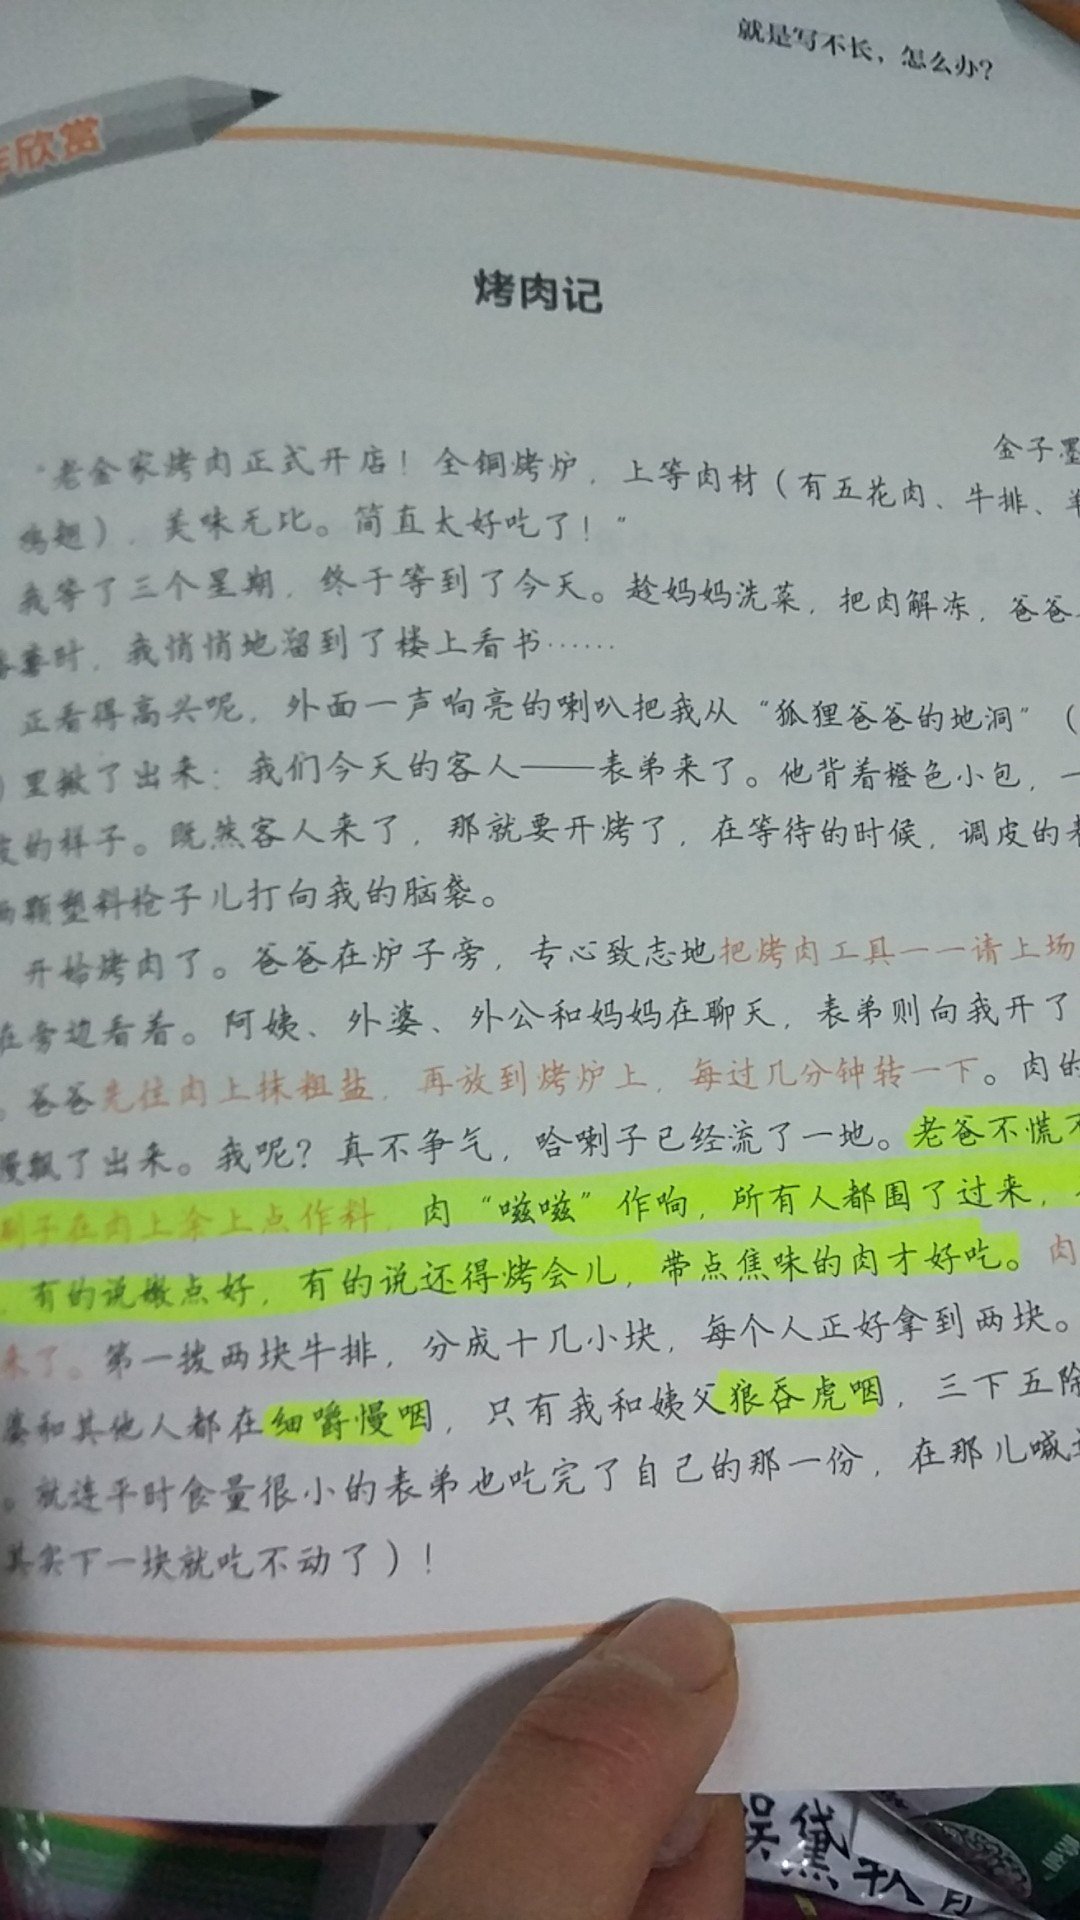 就是写不长，怎么办？
欣赏
烤肉记
金子墨
“老金家烤肉正式开店！全铜烤炉，上等肉材（有五花肉、牛排、
鸡翅），美味无比。简直太好吃了！”
我等了三个星期，终于等到了今天。趁妈妈洗菜，把肉解冻，爸爸
时，我悄悄地溜到了楼上看书……
正看得高兴呢，外面一声响亮的喇叭把我从“狐狸爸爸的地洞”（
）里揪了出来：我们今天的客人——表弟来了。他背着橙色小包，一
的样子。既然客人来了，那就要开烤了，在等待的时候，调皮的
两颗塑料枪子儿打向我的脑袋。
开始烤肉了。爸爸在炉子旁，专心致志地把烤肉工具一一请上场
在旁边看着。阿姨、外婆、外公和妈妈在聊天，表弟则向我开了
。爸爸先往肉上抹粗盐，再放到烤炉上，每过几分钟转一下。肉的
慢飘了出来。我呢？真不争气，哈喇子已经流了一地。老爸不慌不
刷子在肉上涂上点作料，肉“嗞嗞”作响，所有人都围了过来，
，有的说嫩点好，有的说还得烤会儿，带点焦味的肉才好吃。肉
来了。第一拨两块牛排，分成十几小块，每个人正好拿到两块。
婆和其他人都在细嚼慢咽，只有我和姨父狼吞虎咽，三下五除
。就连平时食量很小的表弟也吃完了自己的那一份，在那儿喊
其实下一块就吃不动了）！
黛